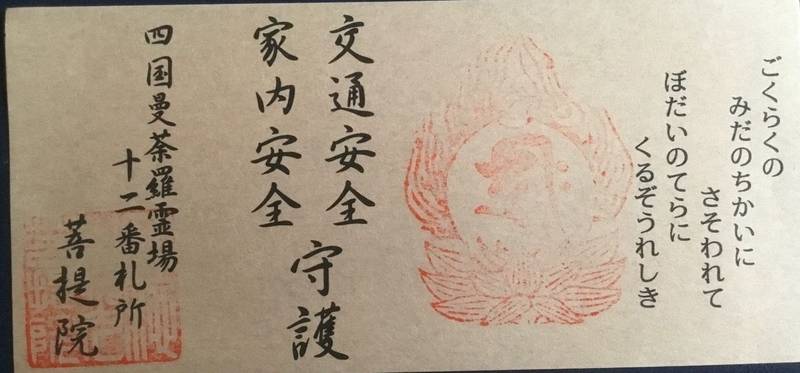 ごくらくの
みだのちかいに
さそわれて
ぼだいのてらに
くるぞうれしき
交通安全
家内安全
守護
四国曼荼羅霊場
十二番札所
菩提院